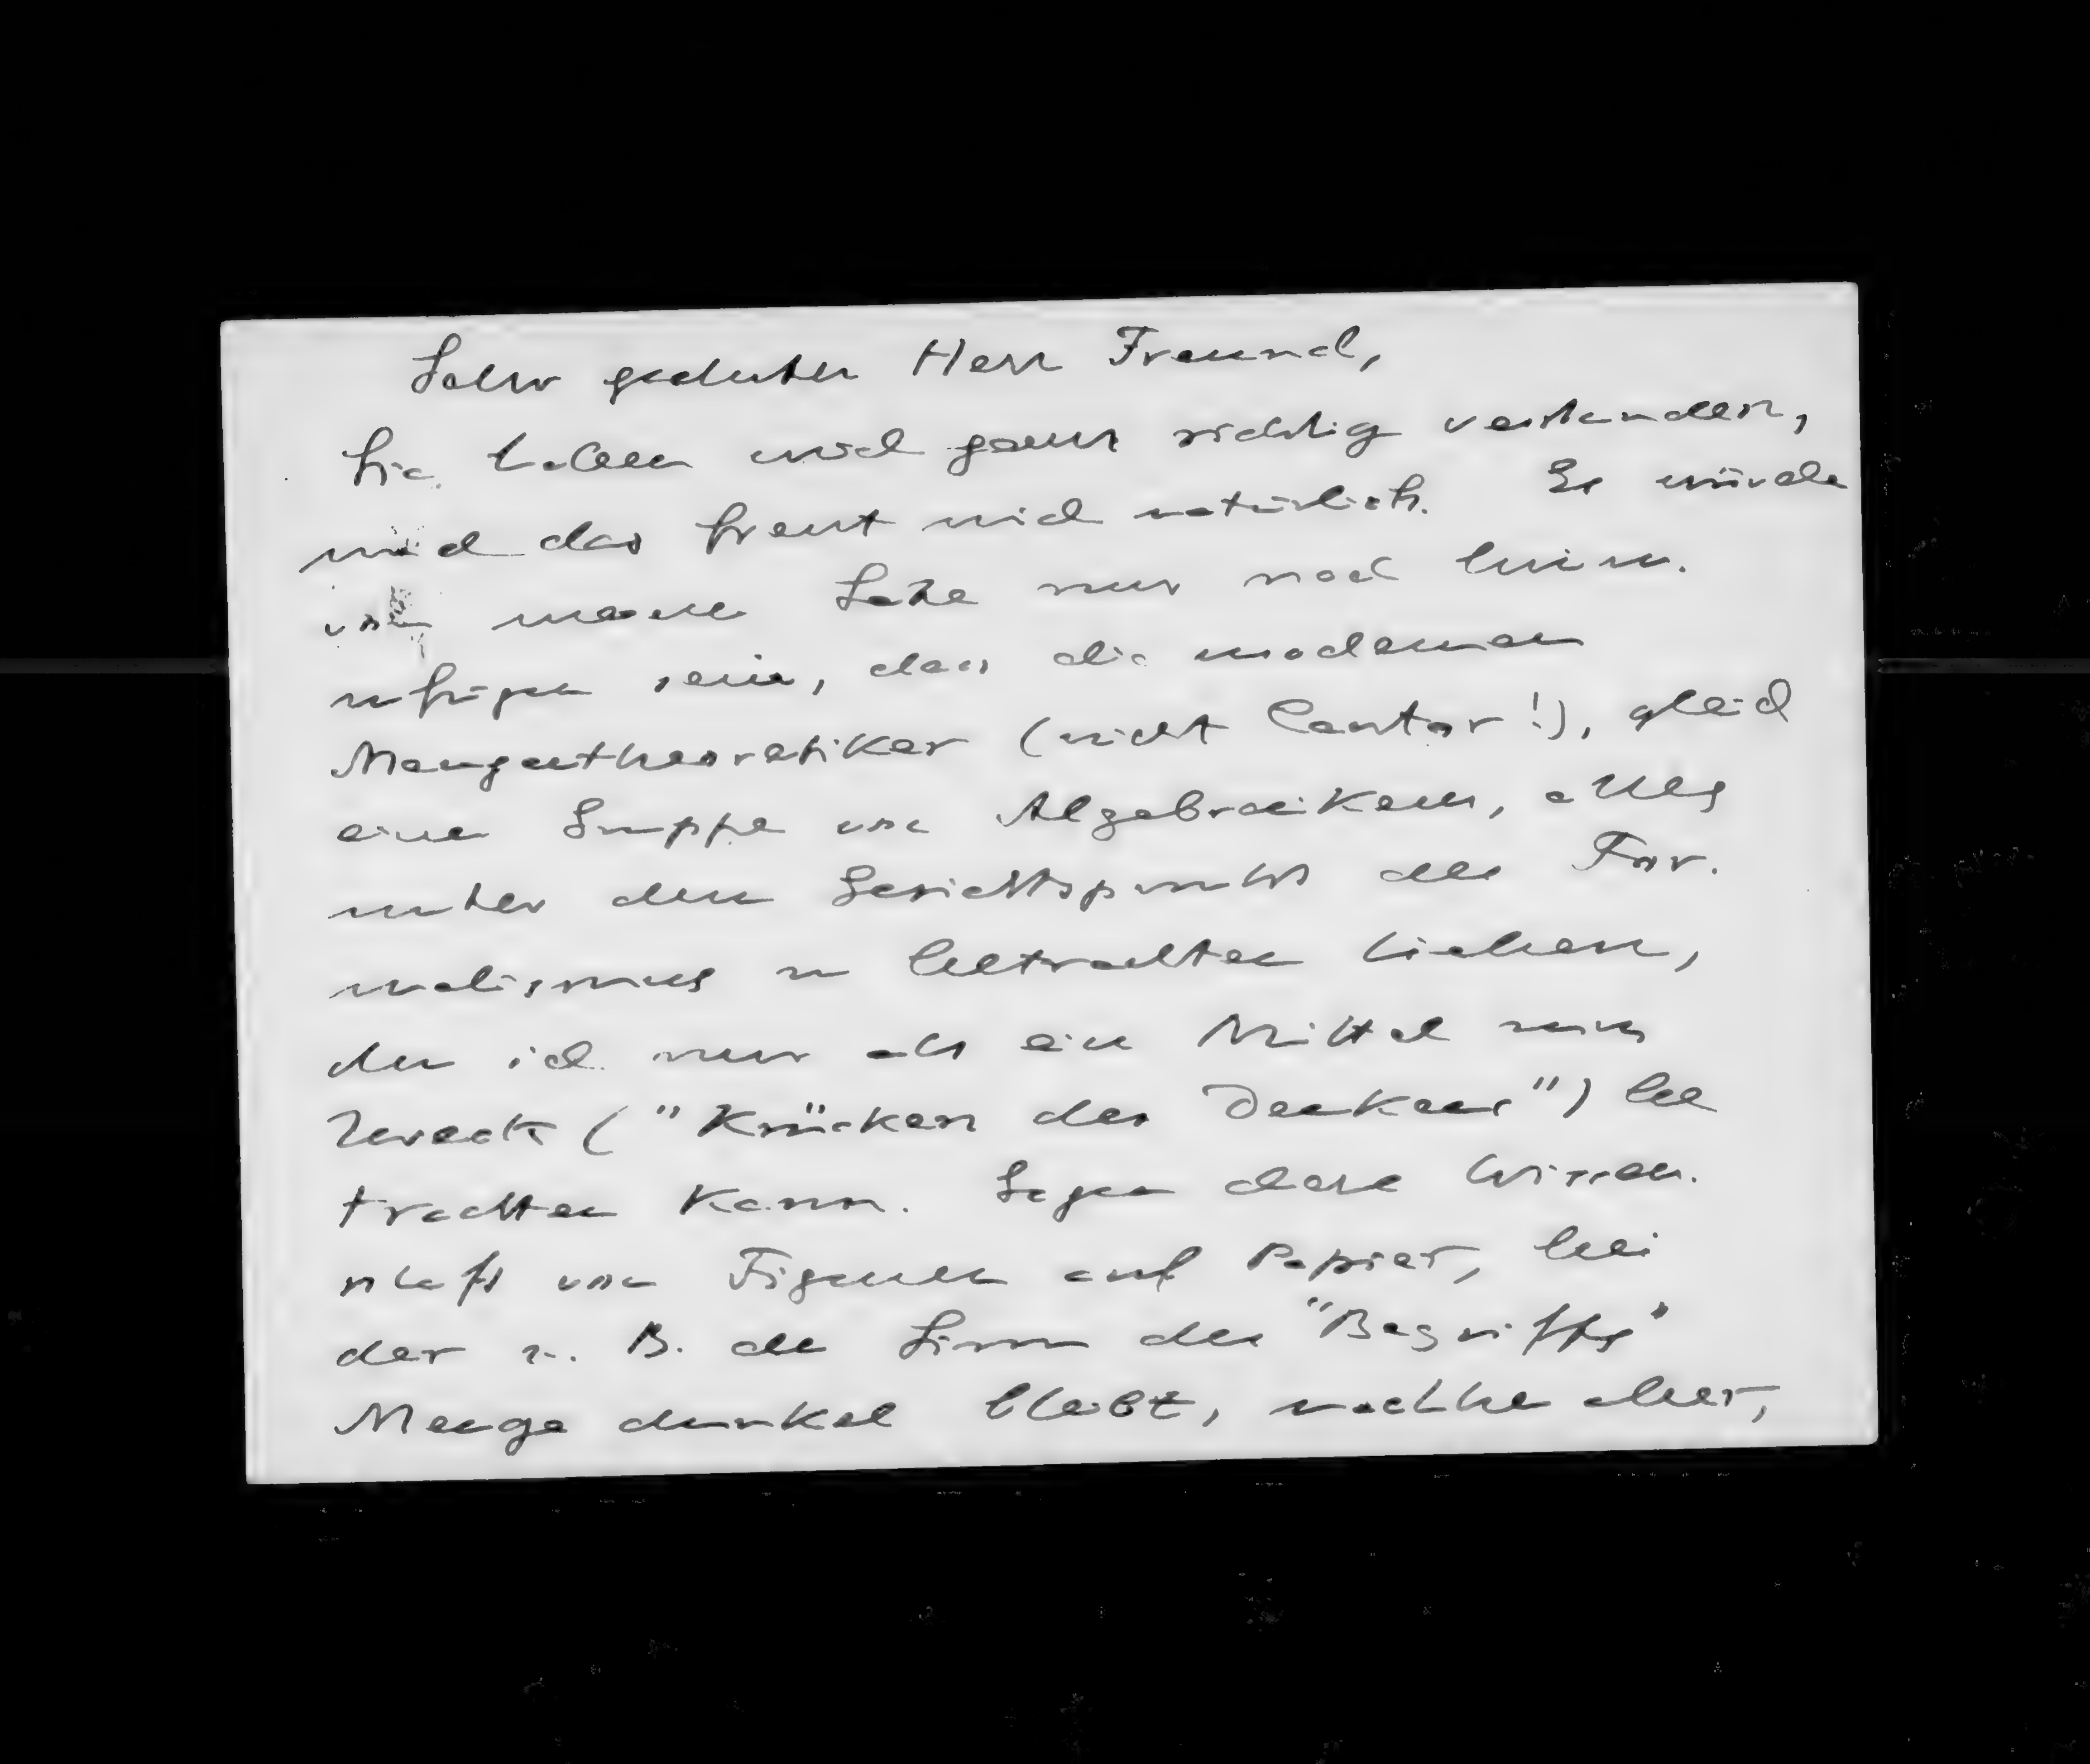 Sehr geehrter Herr Freund,
Sie haben mich ganz richtig verstanden,
und das freut mich natürlich. Es würde
von meiner Seite nur noch hinzu-
zufügen sein, dass die modernen
Mengentheoretiker (nicht Cantor!), gleich
einer Gruppe von Algebraikern, alles
unter dem Gesichtspunkt des For-
malismus zu betrachten lieben,
den ich nur als ein Mittel zum
Zweck ("Krücken des Denkens") be
trachten kann. Gegen diese Wissen-
schaft von Figuren auf Papier, bei
der z. B. der Sinn des "Begriffs"
Menge dunkel bleibt, welche aber,